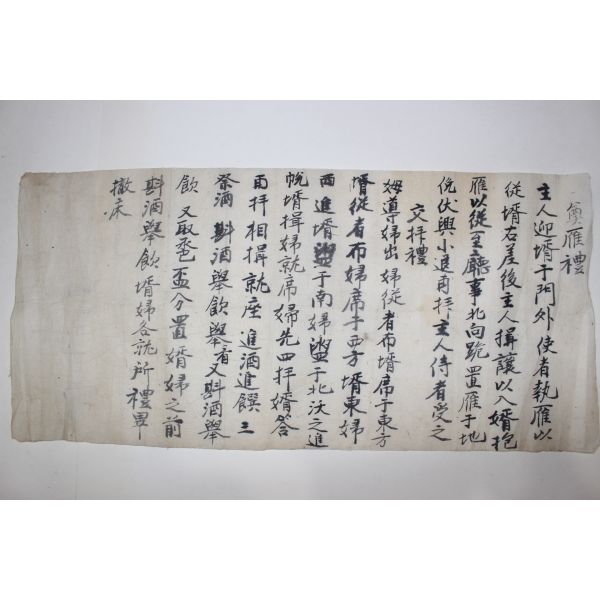 奠雁禮
主人迎壻于門外使者執雁以
從壻右差後主人揖讓以入婿抱
雁以從至廳事北向跪置雁于地
俛伏興小退再拜主人侍者受之
交拜禮
姆導婦出婦從者布壻席于東方
壻從者布婦席于西方壻東婦
西進壻盥于南婦盥于北沃之進
帨壻揖婦就席婦先四拜婿答
再拜相揖就座進酒進饌三
祭酒斟酒舉飮舉肴又斟酒舉
飮又取巹盃分置婿婦之前
斟酒舉飮壻婦各就所禮畢
撤床